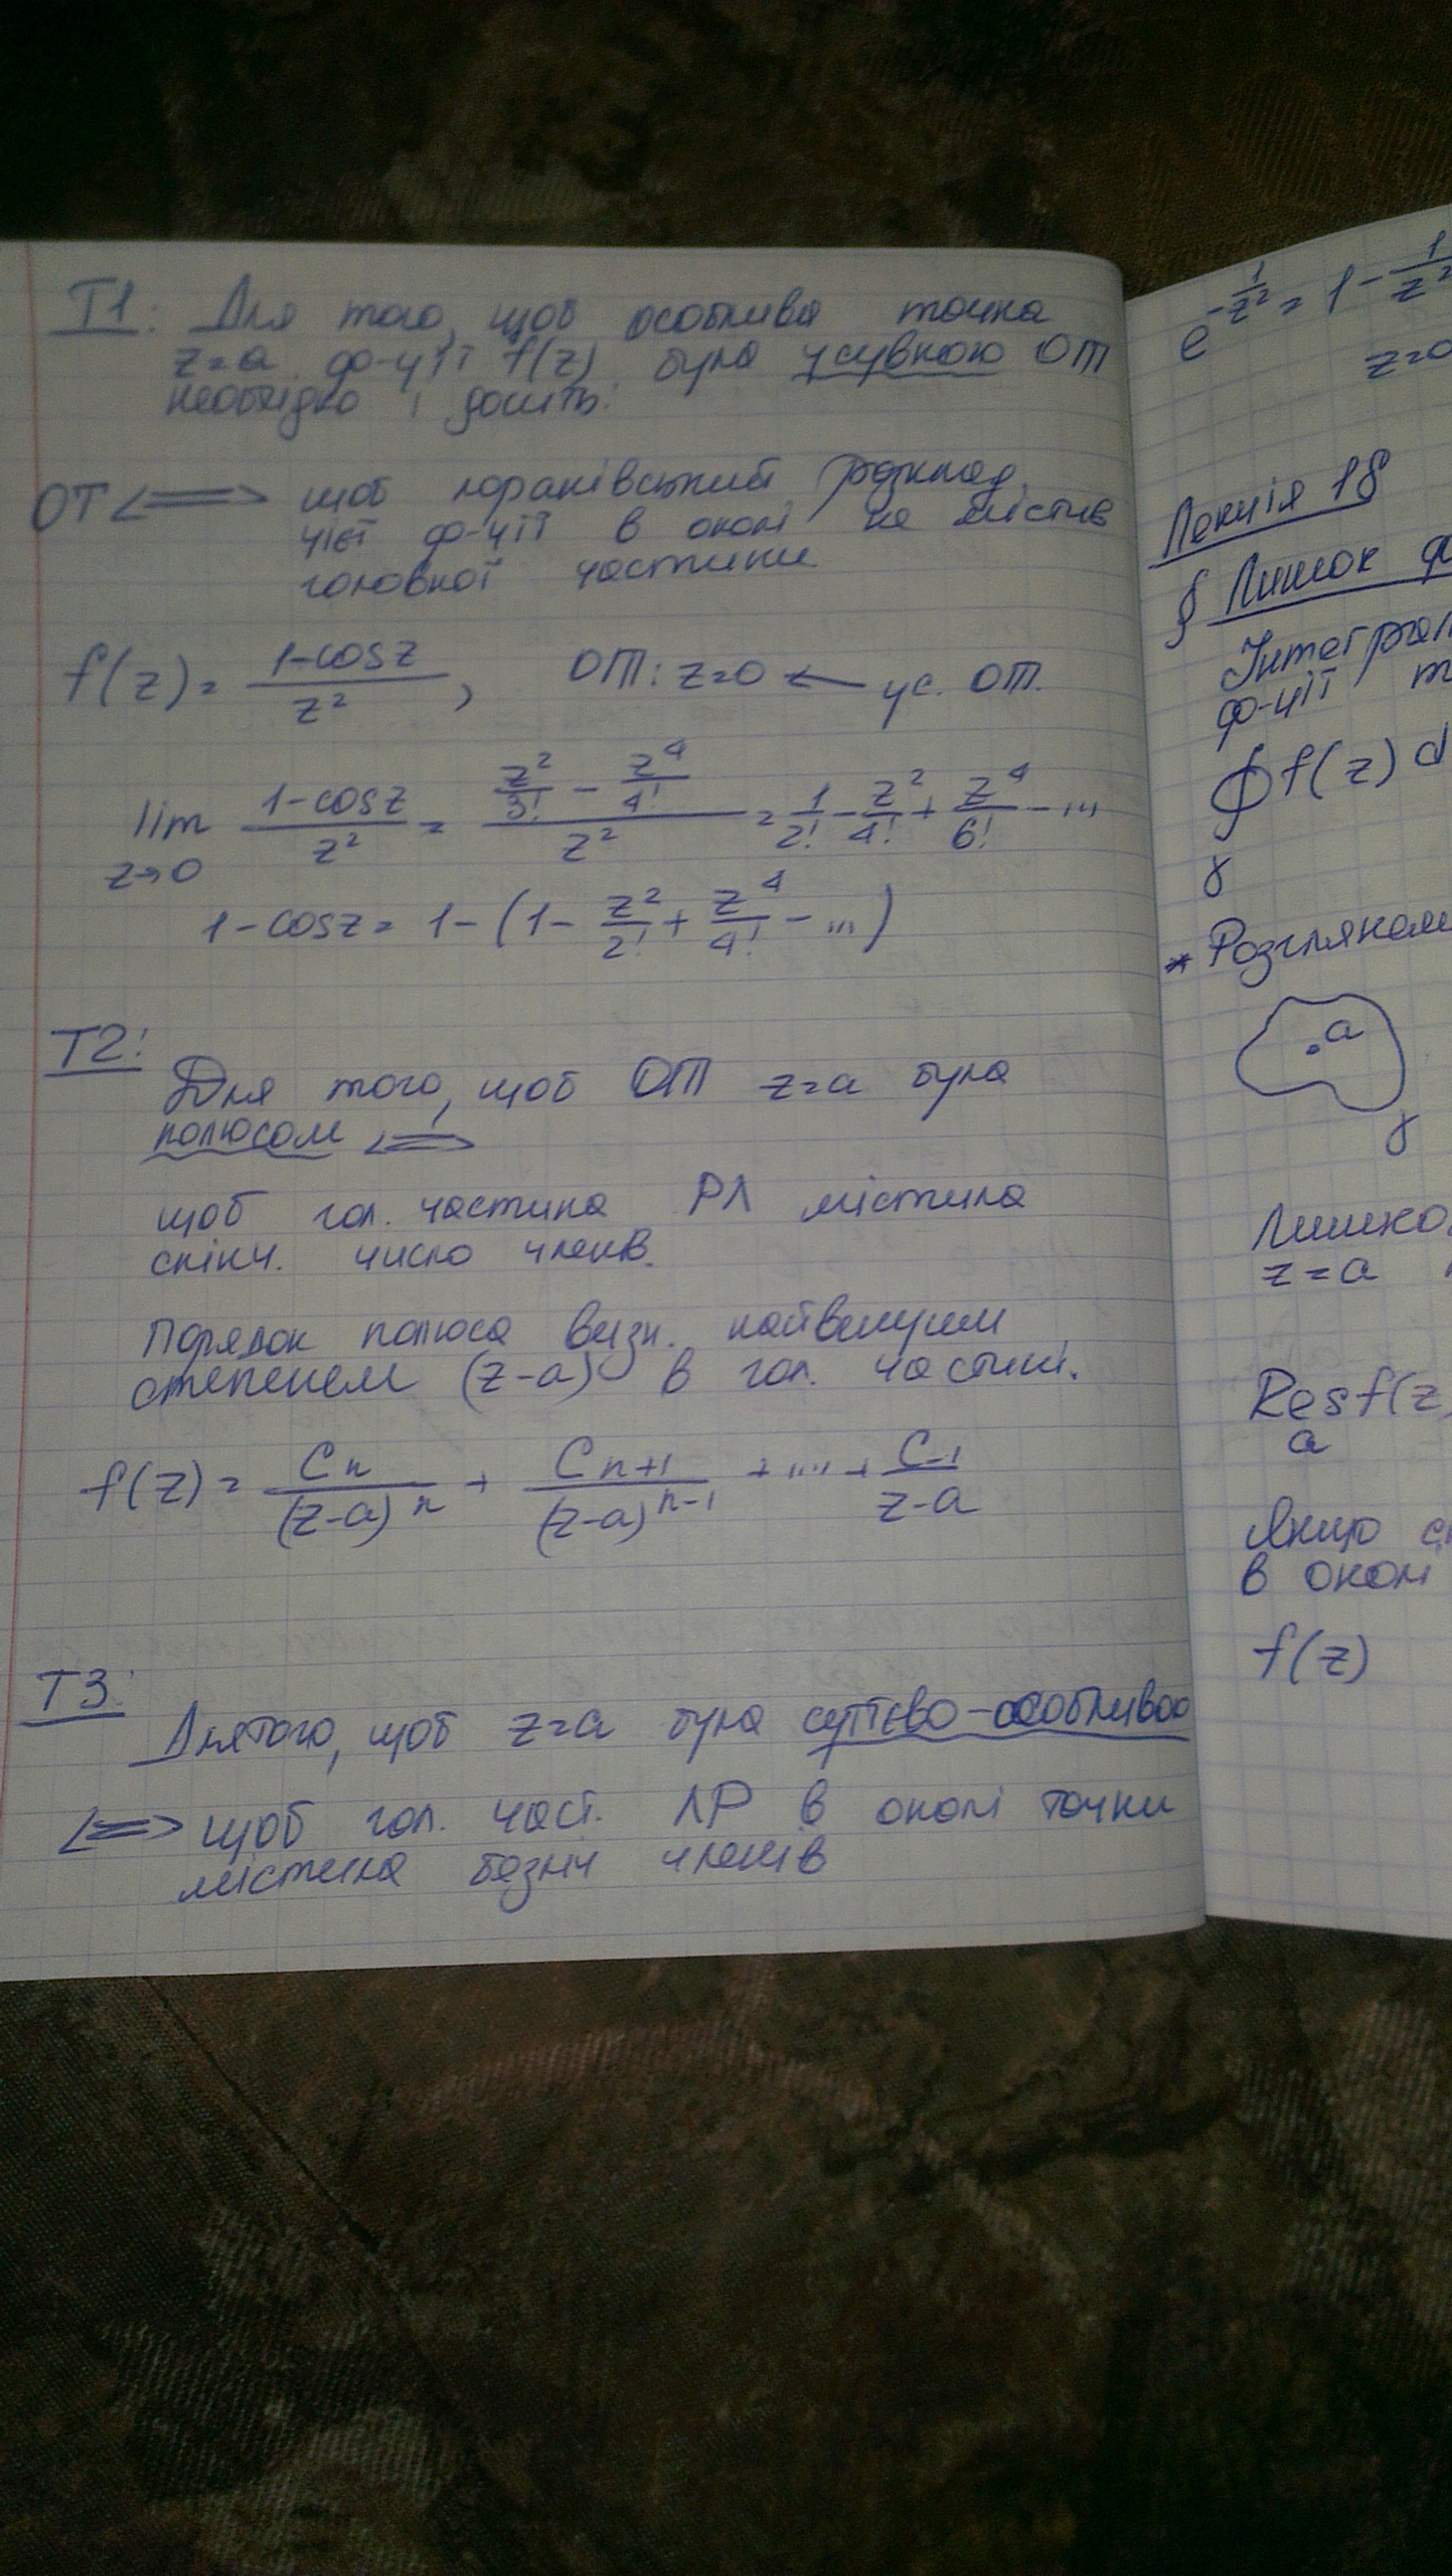 Т1: Для того, щоб особлива точка
z=a ф-ції f(z) була усувною ОТ
необхідно і досить:
ОТ <=> щоб лоранівський розклад
цієї ф-ції в околі не містив
головної частини
f(z) = (1-cosz)/z², ОТ: z=0 ← ус. ОТ.
lim z→0 (1-cosz)/z² = (z²/3! - z⁴/4!)/z² = 1/2! - z²/4! + z⁴/6! - ...
1-cosz = 1-(1- z²/2! + z⁴/4! - ...)
Т2:
Для того, щоб ОТ z=a була
полюсом <=>
щоб гол. частина РЛ містила
скінч. число членів.
Порядок полюса визн. найвищим
степенем (z-a) в гол. частині.
f(z) = Cn/(z-a)^n + Cn+1/(z-a)^(n-1) + .... + C-1/(z-a)
Т3:
Для того, щоб z=a була суттєво-особливою
<=> щоб гол. част. ЛР в околі точки
містила безліч членів
e^(-1/z²) = 1 - 1/z²
z=0
Лекція 18
§ Лишок ф
Інтеграл
ф-ції
∮ f(z) d
γ
* Розглянем
a
γ
Лишко
z=a
Res f(z)
a
Якщо
в околі
f(z)